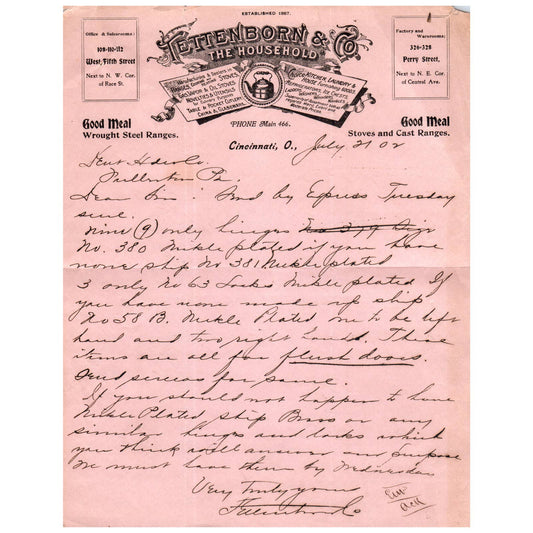 ESTABLISHED 1867.
Office & Salesrooms:
108-110-112
West Fifth Street
Next to N. W. Cor.
of Race St.
TETTENBORN & Co
THE HOUSEHOLD
Factory and
Warerooms:
326-328
Perry Street,
Next to N. E. Cor.
of Central Ave.
Manufacturers & Dealers in
STOVES
GAS, VAPOR & OIL STOVES
NOVELTIES & UTENSILS
TABLE & POCKET CUTLERY
CHINA & GLASSWARE
KITCHEN, LAUNDRY &
HOUSE Furnishing GOODS
REFRIGERATORS, ICE CHESTS
Good Meal
Wrought Steel Ranges.
PHONE Main 466.
Good Meal
Stoves and Cast Ranges.
Cincinnati, O., July 21 02
Dent Hdw Co.
Fullerton Pa.
Dear Sirs: Send by Express Tuesday
sure.
Nine (9) only hinges
No. 380 Nickle plated if you have
none ship No 381 Nickle plated
3 only No 63 Locks Nickle plated If
you have none made up ship
No 58 B. Nickle Plated one to be left
hand and two right hand. These
items are all for flush doors.
Send screws for same.
If you should not happen to have
Nickle Plated ship Brass or any
similar hinges and locks which
you think will answer our purpose
We must have them by Wednesday
Very truly yours
Tettenborn & Co